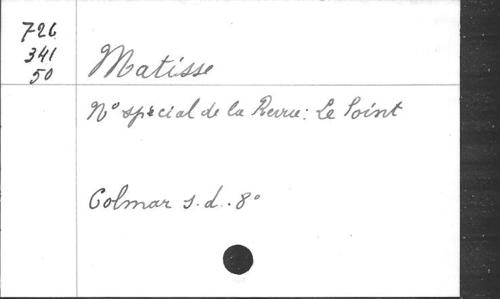 726
341
50
Matisse
N° spécial de la Revue: Le Point
Colmar s.d. 8°